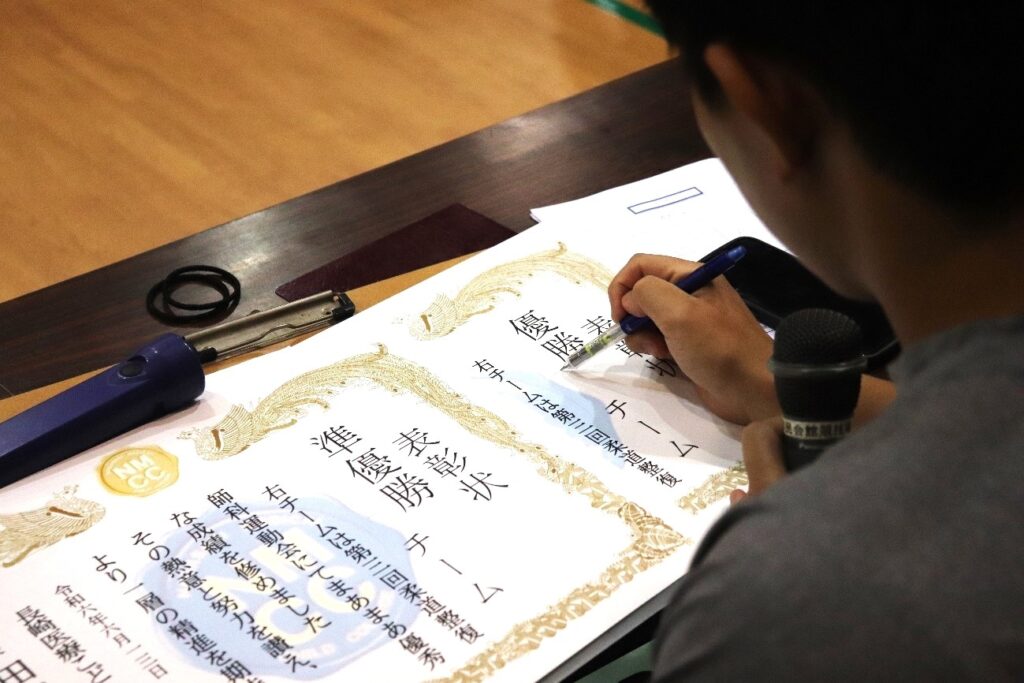 表彰状
優勝
チーム
右チームは第三回柔道整復
表彰状
準優勝
チーム
右チームは第三回柔道整復
師科運動会にてまあまあ優秀
な成績を修めました
その熱意と努力を讃え、
より一層の精進を期
令和六年六月一三日
長崎医療こど
田
NM
CC
NM
CC